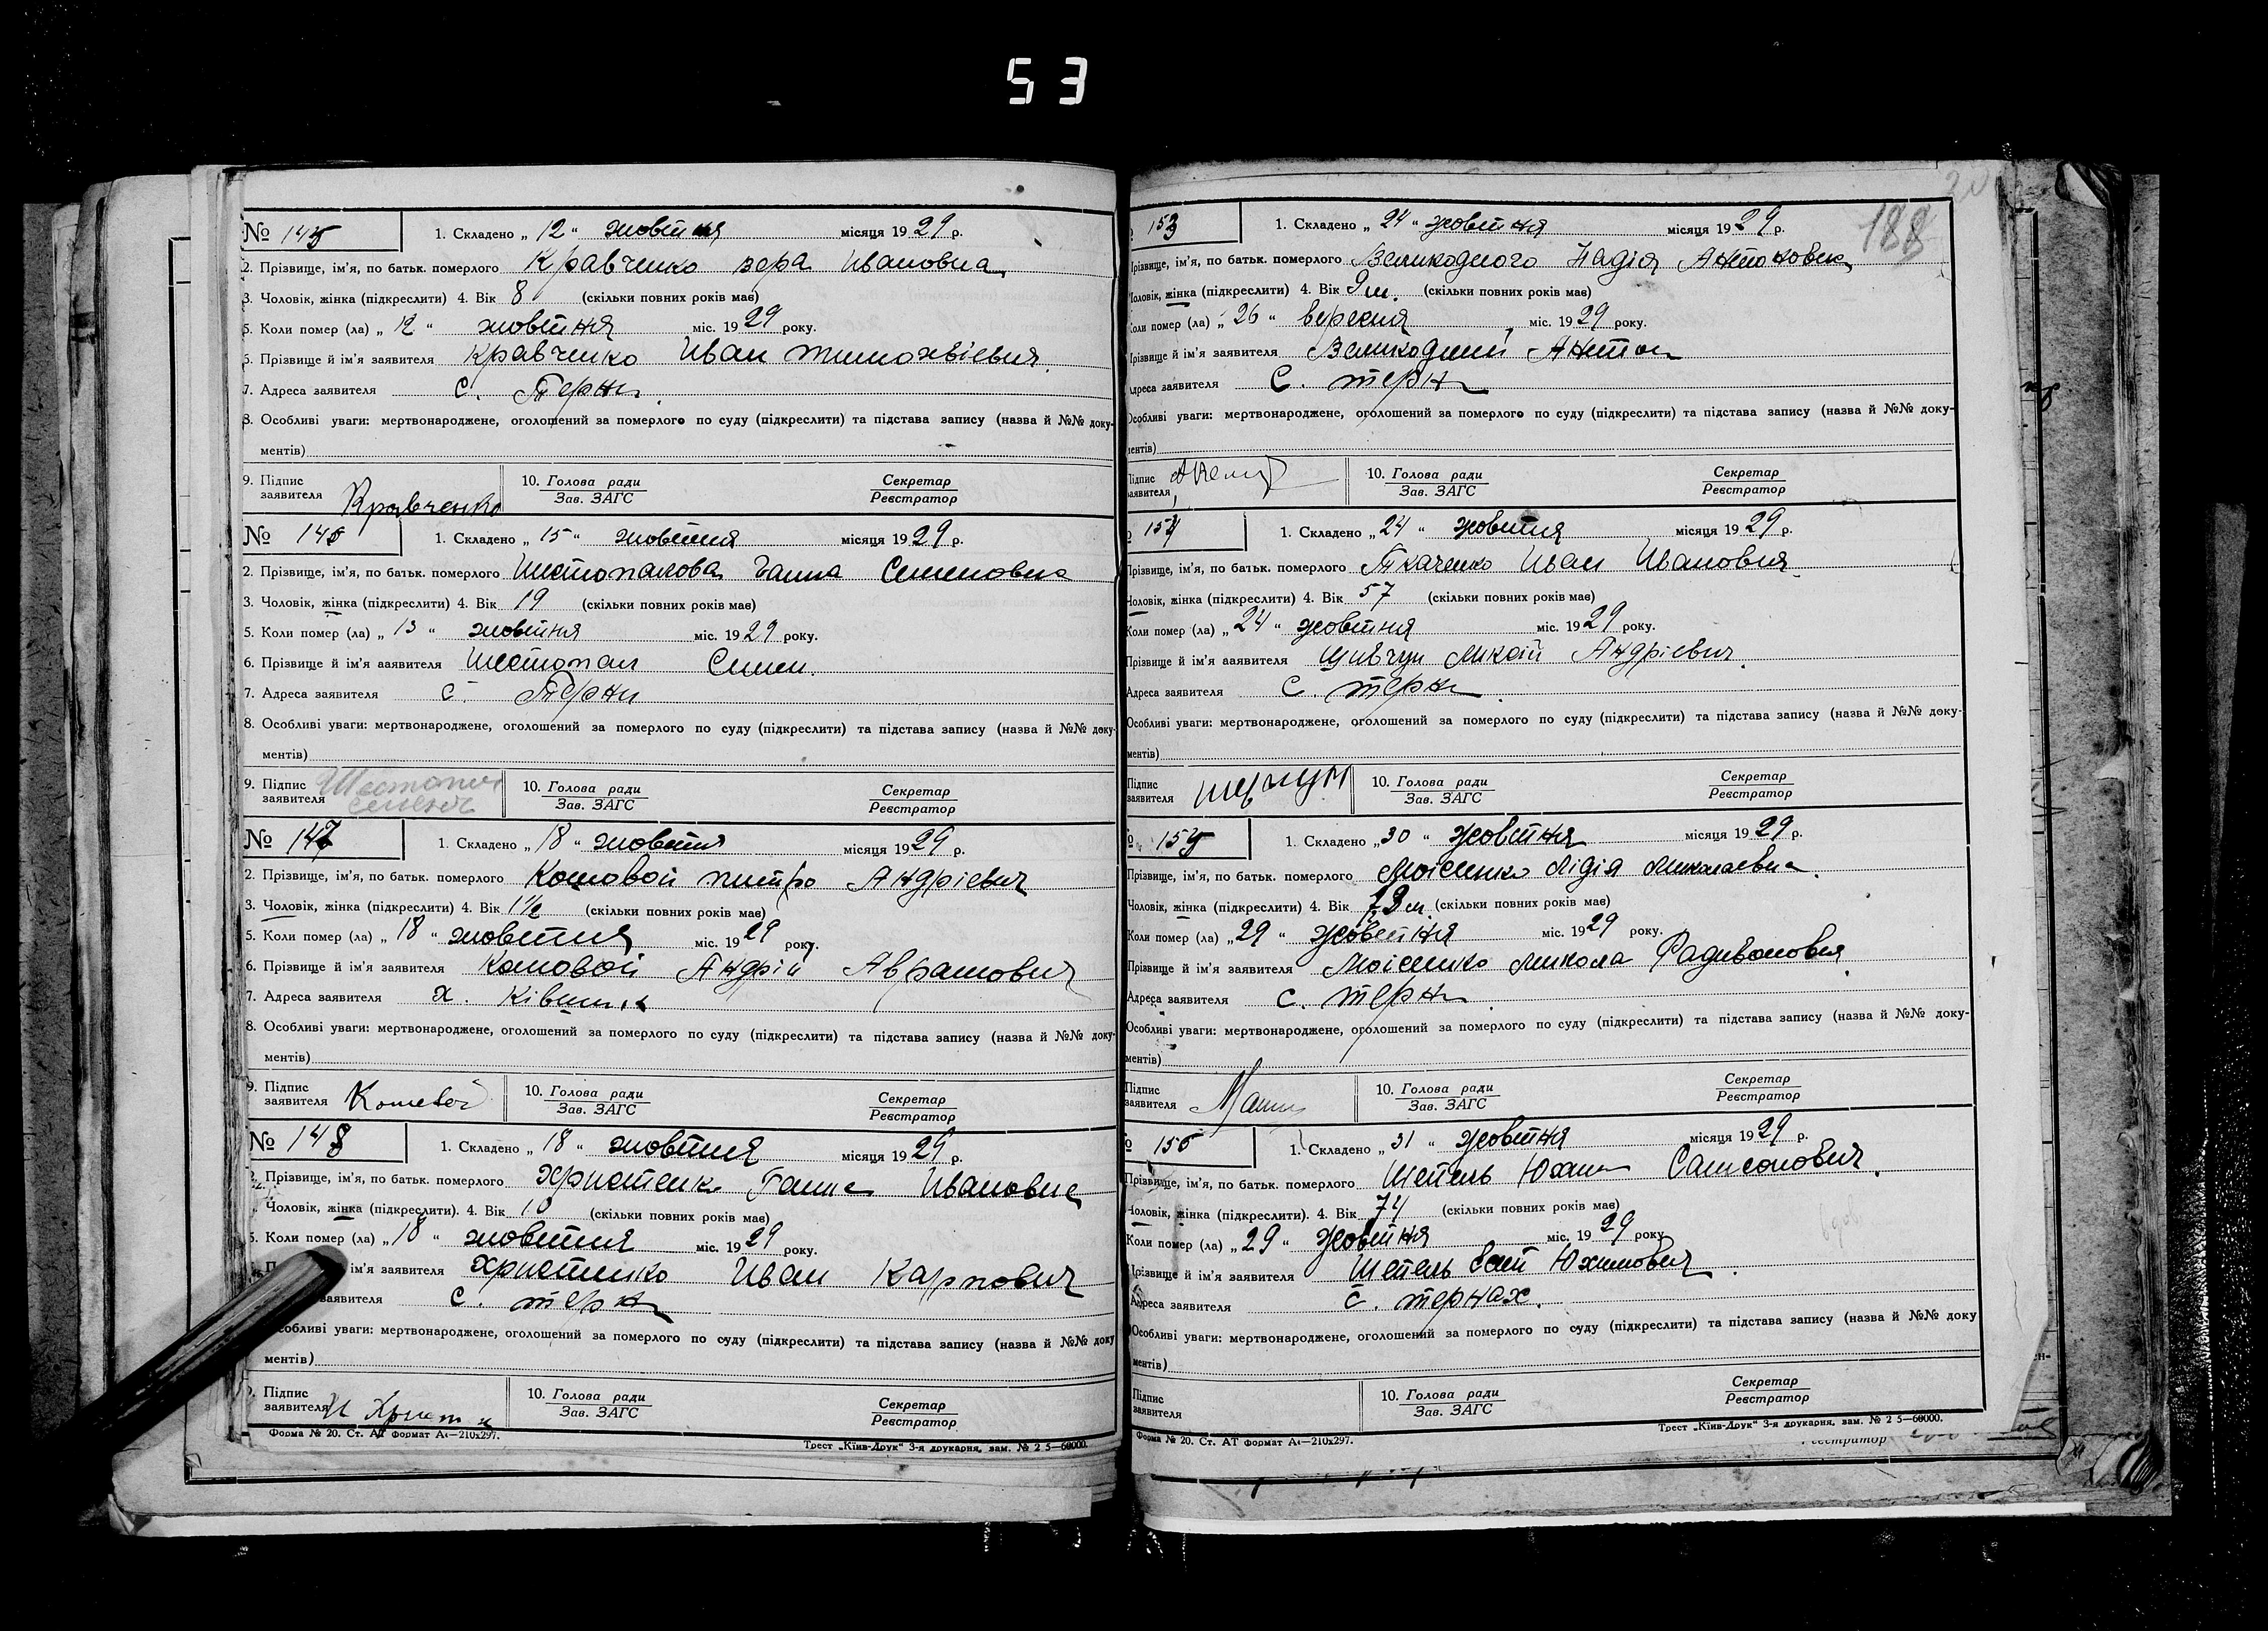 53
№ 145 1. Складено „ 12 “ жовтня місяця 1929 р.
2. Прізвище, ім'я, по батьк. померлого Кравченко вера Ивановна
3. Чоловік, жінка (підкреслити) 4. Вік 8 (скільки повних років має)
5. Коли помер (ла) „ 12 “ жовтня міс. 1929 року.
6. Прізвище й ім'я заявителя Кравченко Иван тимохвієвич
7. Адреса заявителя с. Терни.
8. Особливі уваги: мертвонароджене, оголошений за померлого по суду (підкреслити) та підстава запису (назва й №№ доку-
ментів)
9. Підпис заявителя Кравченко 10. Голова ради Зав. ЗАГС Секретар Реєстратор
№ 146 1. Складено „ 15 “ жовтня місяця 1929 р.
2. Прізвище, ім'я, по батьк. померлого Шестопалова Ганна Семеновна
3. Чоловік, жінка (підкреслити) 4. Вік 19 (скільки повних років має)
5. Коли помер (ла) „ 13 “ жовтня міс. 1929 року.
6. Прізвище й ім'я заявителя Шестопал Семен.
7. Адреса заявителя с. Терни
8. Особливі уваги: мертвонароджене, оголошений за померлого по суду (підкреслити) та підстава запису (назва й №№ доку-
ментів)
9. Підпис заявителя Шестопал 10. Голова ради Зав. ЗАГС Секретар Реєстратор
№ 147 1. Складено „ 18 “ жовтня місяця 1929 р.
2. Прізвище, ім'я, по батьк. померлого Кошовой питро Андрієвич
3. Чоловік, жінка (підкреслити) 4. Вік 1½ (скільки повних років має)
5. Коли помер (ла) „ 18 “ жовтня міс. 1929 року.
6. Прізвище й ім'я заявителя Кошовой Андрій Аврамович
7. Адреса заявителя х.
8. Особливі уваги: мертвонароджене, оголошений за померлого по суду (підкреслити) та підстава запису (назва й №№ доку-
ментів)
9. Підпис заявителя Кошевой 10. Голова ради Зав. ЗАГС Секретар Реєстратор
№ 148 1. Складено „ 18 “ жовтня місяця 1929 р.
2. Прізвище, ім'я, по батьк. померлого Христенко Ганна Ивановна
Чоловік, жінка (підкреслити). 4. Вік 10 (скільки повних років має)
5. Коли помер (ла) „ 18 “ жовтня міс. 1929 року.
ім'я заявителя Христенко Иван Карпович
заявителя с. терни
Особливі уваги: мертвонароджене, оголошений за померлого по суду (підкреслити) та підстава запису (назва й №№ доку
ментів)
9. Підпис заявителя И Христ 10. Голова ради Зав. ЗАГС Секретар Реєстратор
Форма № 20. Ст. АТ формат А4—210х297. Трест „Київ-Друк“ 3-я друкарня, зам. № 2 5—60000.
188
153 1. Складено „ 24 “ жовтня місяця 1929 р.
Прізвище, ім'я, по батьк. померлого Великодного Надія Антоновна
Чоловік, жінка (підкреслити) 4. Вік 9 м. (скільки повних років має)
Коли помер (ла) „ 26 “ вересня міс. 1929 року.
Прізвище й ім'я заявителя Великодний Антон
Адреса заявителя с. терни
Особливі уваги: мертвонароджене, оголошений за померлого по суду (підкреслити) та підстава запису (назва й №№ доку-
ментів)
Підпис заявителя 10. Голова ради Зав. ЗАГС Секретар Реєстратор
154 1. Складено „ 24 “ жовтня місяця 1929 р.
Прізвище, ім'я, по батьк. померлого Ткаченко Иван Иванович
Чоловік, жінка (підкреслити) 4. Вік 57 (скільки повних років має)
Коли помер (ла) „ 24 “ жовтня міс. 1929 року.
Прізвище й ім'я заявителя Андрієвич.
Адреса заявителя с. терни
Особливі уваги: мертвонароджене, оголошений за померлого по суду (підкреслити) та підстава запису (назва й №№ доку-
ментів)
Підпис заявителя 10. Голова ради Зав. ЗАГС Секретар Реєстратор
155 1. Складено „ 30 “ жовтня місяця 1929 р.
Прізвище, ім'я, по батьк. померлого Моісенко Лідія Миколаевна.
Чоловік, жінка (підкреслити) 4. Вік м (скільки повних років має)
Коли помер (ла) „ 29 “ жовтня міс. 1929 року.
Прізвище й ім'я заявителя Моісенко Микола Радивонович
Адреса заявителя с. терни
Особливі уваги: мертвонароджене, оголошений за померлого по суду (підкреслити) та підстава запису (назва й №№ доку-
ментів)
Підпис заявителя 10. Голова ради Зав. ЗАГС Секретар Реєстратор
156 1. Складено „ 31 “ жовтня місяця 1929 р.
Прізвище, ім'я, по батьк. померлого Шепель Юхим Самсонович.
Чоловік, жінка (підкреслити). 4. Вік 74 (скільки повних років має)
Коли помер (ла) „ 29 “ жовтня міс. 1929 року
Прізвище й ім'я заявителя Шепель Юхимович.
Адреса заявителя с. тернах.
Особливі уваги: мертвонароджене, оголошений за померлого по суду (підкреслити) та підстава запису (назва й №№ доку
ментів)
Підпис заявителя 10. Голова ради Зав. ЗАГС Секретар Реєстратор
Форма № 20. Ст. АТ формат А4—210х297. Трест „Київ-Друк“ 3-я друкарня, зам. № 2 5—60000.
Реєстратор